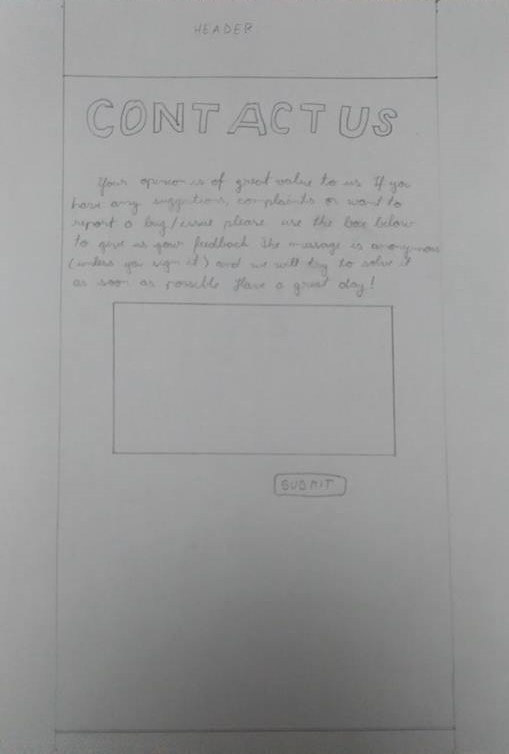 HEADER
CONTACT US
Your opinion is of great value to us If you
have any suggestions, complaints or want to
report a bug/issue please use the box below
to give us your feedback The message is anonymous
(unless you sign it) and we will try to solve it
as soon as possible Have a great day!
SUBMIT